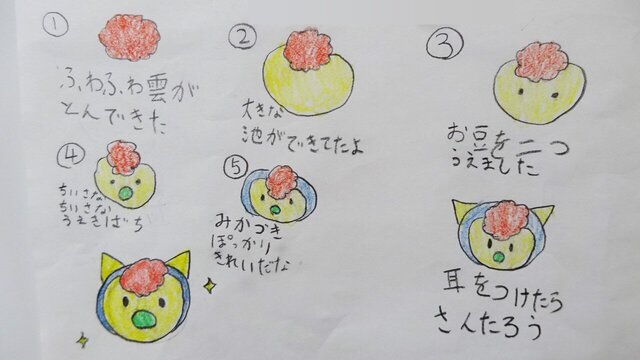 ①
ふわふわ雲が
とんできた
②
大きな
池ができてたよ
③
お豆を二つ
うえました
④
ちいさな
ちいさな
うえきばち
⑤
みかづき
ぽっかり
きれいだな
耳をつけたら
さんたろう